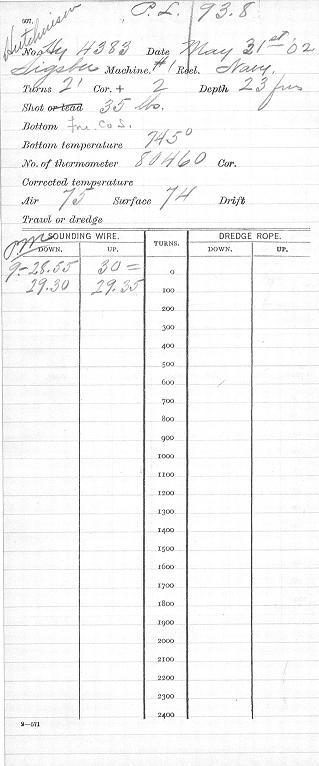 607.
Hutchinson
P. L. 93.8
No. Hy 4383 Date May 31st '02
Sigsbee Machine. #1 Reel. Navy.
Turns 21 Cor. + 2 Depth 23 fms
Shot or lead 35 lbs.
Bottom fne. co S.
Bottom temperature 74.5°
No. of thermometer 80460 Cor.
Corrected temperature
Air 75 Surface 74 Drift
Trawl or dredge
pm SOUNDING WIRE. TURNS. DREDGE ROPE.
DOWN. UP. DOWN. UP.
9-28.55 30= 0
29.30 29.35 100
200
300
400
500
600
700
800
900
1000
1100
1200
1300
1400
1500
1600
1700
1800
1900
2000
2100
2200
2300
2400
2—571